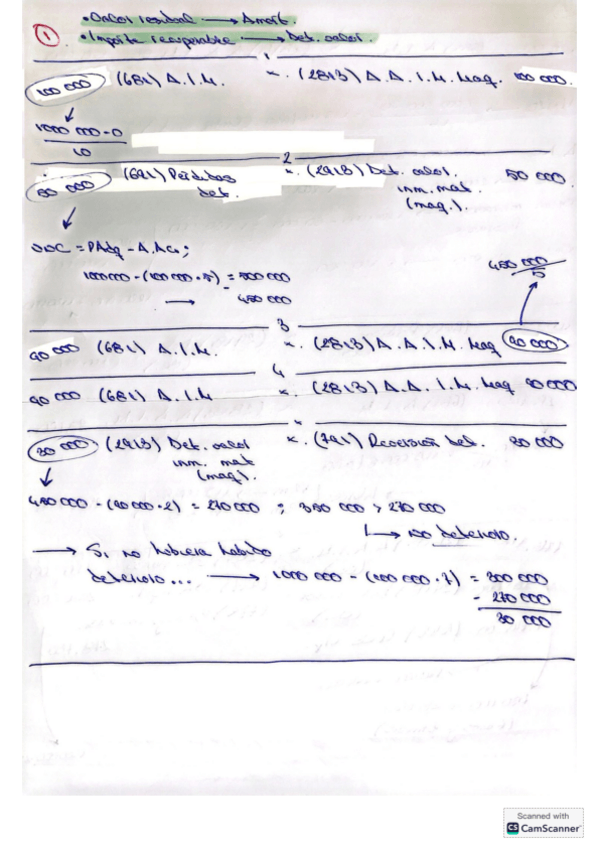 • Valor residual → Amort.
① • Importe recuperable → Det. valor.
1
100 000 (681) A. I. M. × . (2813) A. A. I. M. Maq. 100 000.
1000 000 - 0
10
2
50 000 (691) Pérdidas det. × . (2913) Det. valor inm. mat. (maq.). 50 000
VNC = PAdq - A.Ac.;
1000000 - (100 000 · 5) = 500 000
→ 450 000
450 000
5
3
90 000 (681) A. I. M. × . (2813) A. A. I. M. Maq 90 000
4
90 000 (681) A. I. M. × . (2813) A. A. I. M. Maq 90 000
×
30 000 (2913) Det. valor inm. mat (maq). × . (791) Reversión det. 30 000
450 000 - (90 000 · 2) = 270 000 ; 350 000 > 270 000
→ no deterioro.
→ Si no hubiera habido
deterioro... → 1000 000 - (100 000 · 7) = 300 000
- 270 000
30 000
Scanned with
CS CamScanner